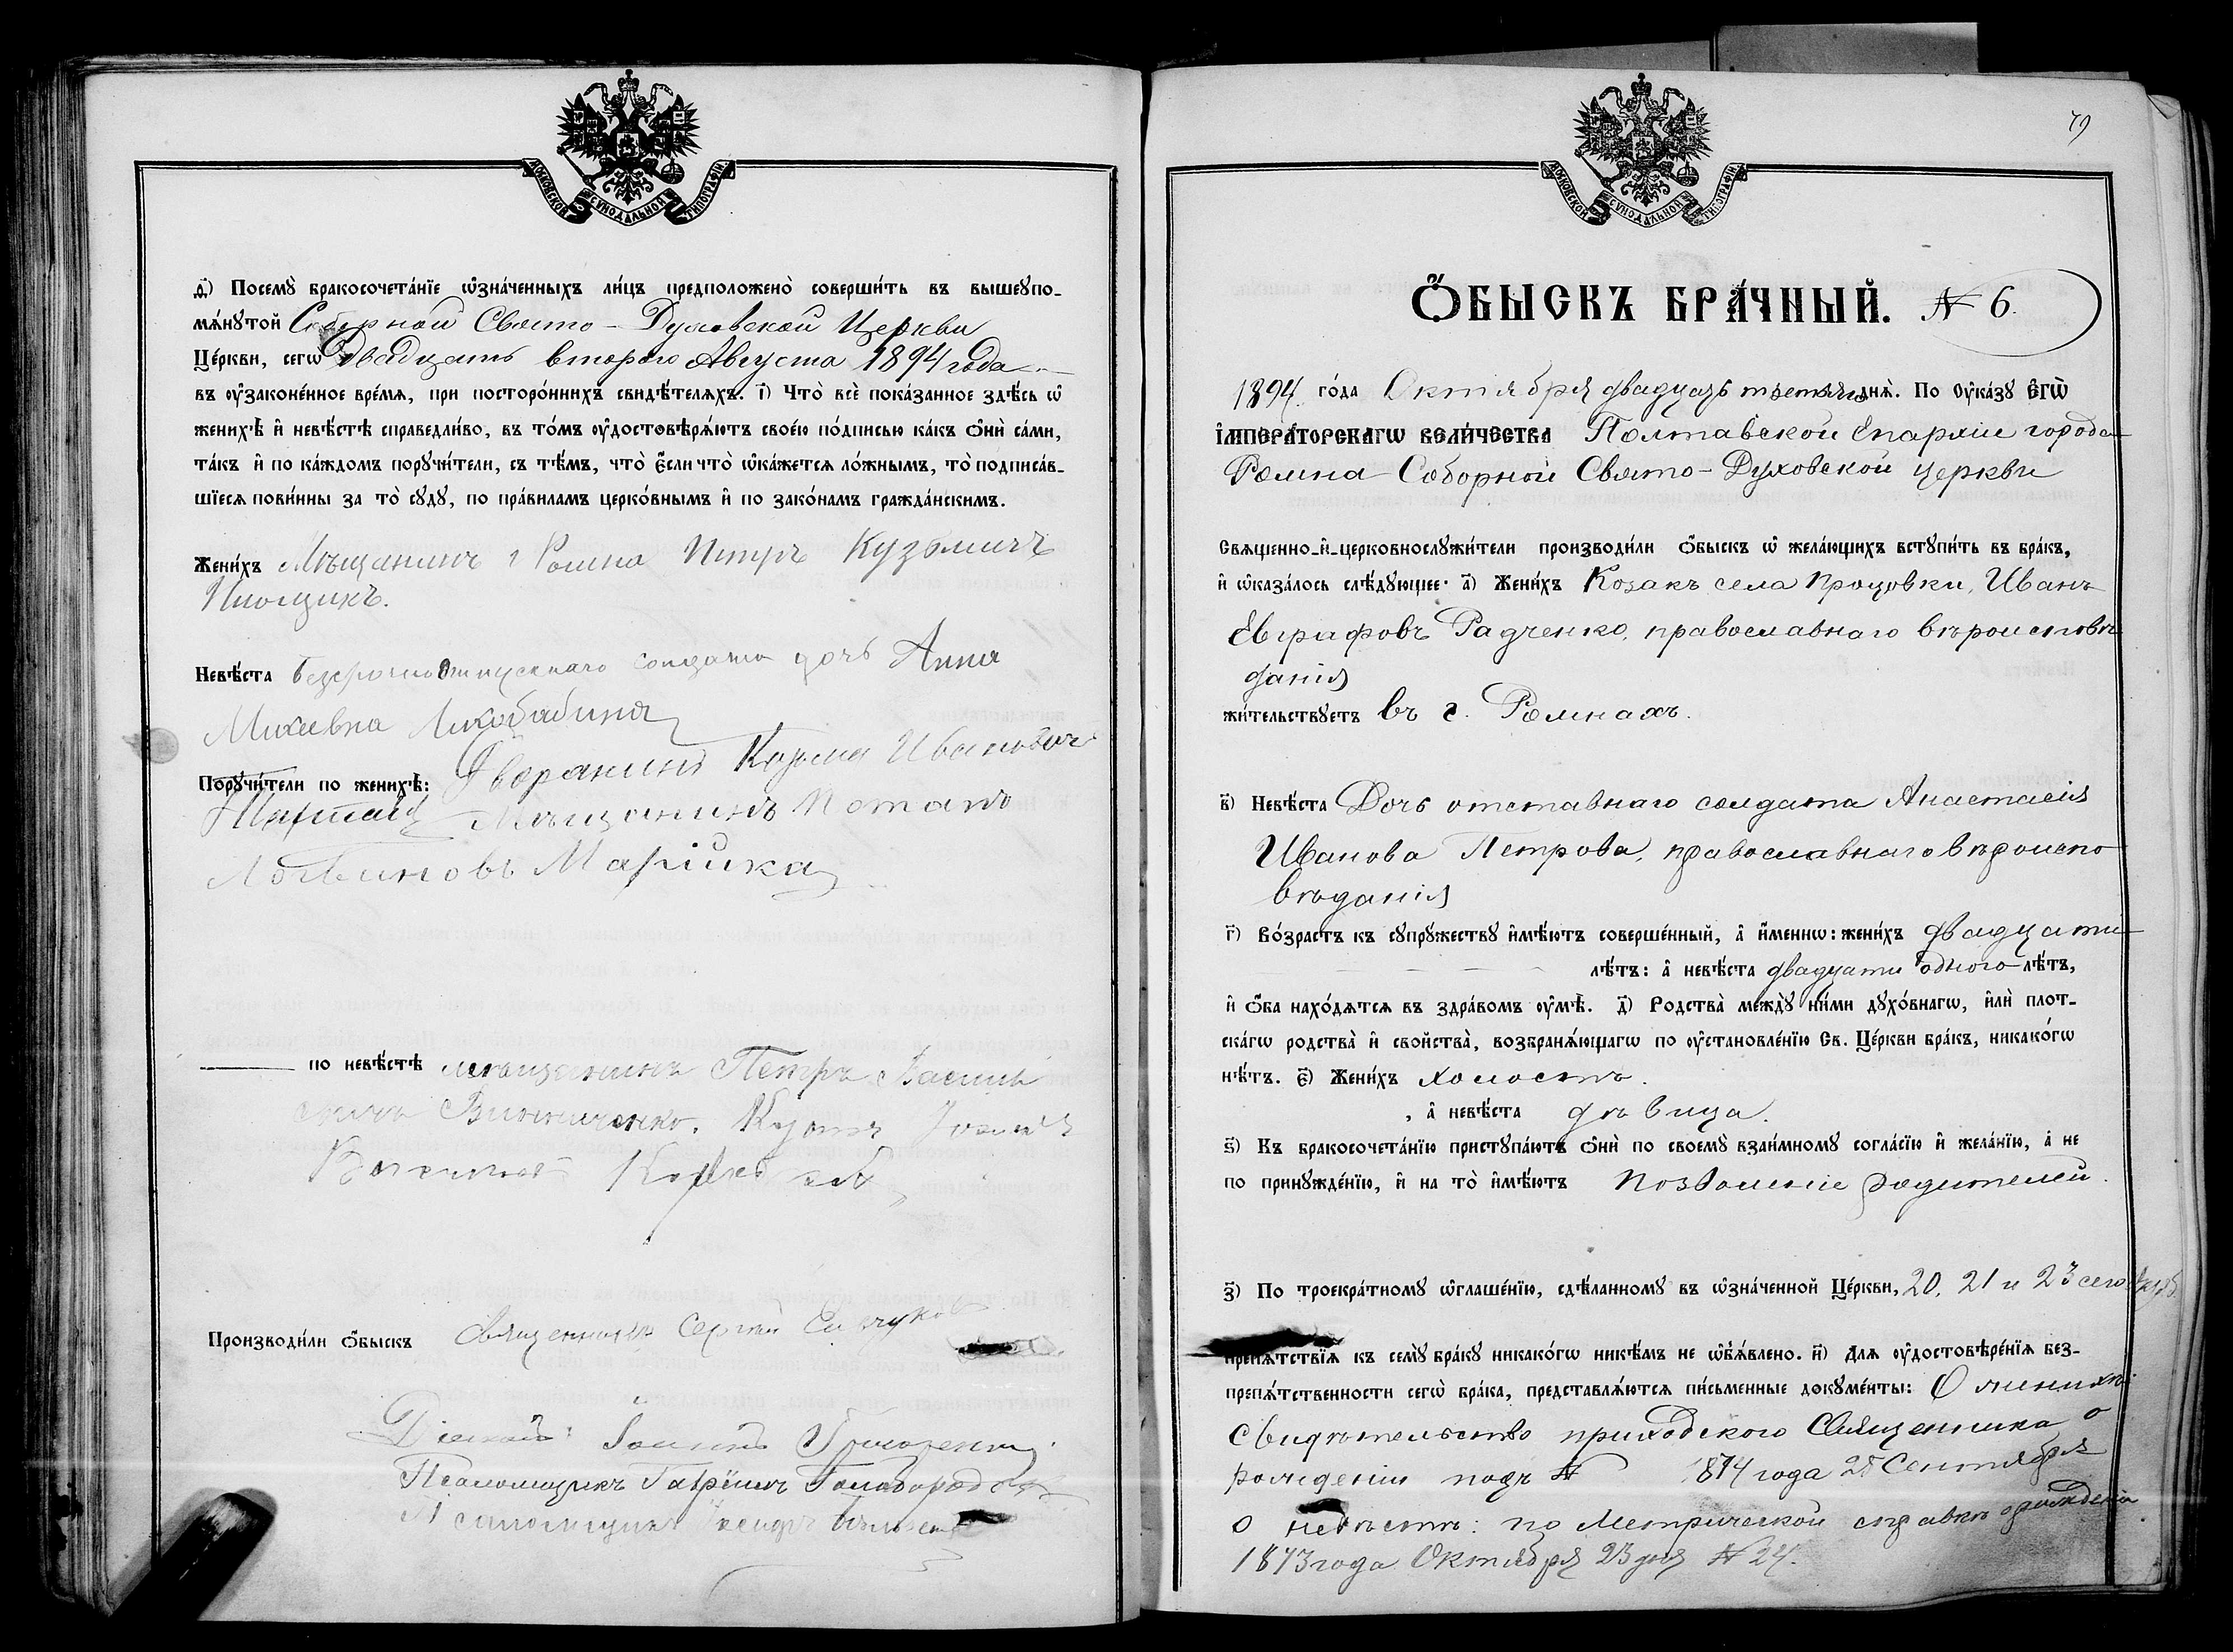 МОСКОВСКОЙ СѴНОДАЛЬНОЙ ТИПОГРАФІИ
д҃) Посемꙋ̀ бракосочета́нїе ѡ҆зна́ченныхъ ли́цъ предположено̀ соверши́ть въ вышеꙋпо-
мѧ́нꙋтой Соборной Свято-Духовской Церкви
Це́ркви, сегѡ̀ Двадцать второго Августа 1894 года
въ ᲂу҆законе́нное вре́мѧ, при посторо́ннихъ свидѣ́телѧхъ. і҃) Что̀ всѐ пока́занное здѣ́сь ѡ҆
женихѣ̀ и҆ невѣ́стѣ справедли́во, въ то́мъ ᲂу҆достовѣрѧ́ютъ свое́ю по́дписью ка́къ ѻ҆нѝ са́ми,
та́къ и҆ по ка́ждомъ порꙋчи́тели, съ тѣ́мъ, что̀ є҆́сли что̀ ѡ҆ка́жетсѧ ло́жнымъ, то̀ подписа́в-
шїесѧ пови́нны за то̀ сꙋдꙋ̀, по пра́виламъ церко́внымъ и҆ по зако́намъ гражда́нскимъ.
Жени́хъ Мѣщанинъ г Ромна Петръ Кузьмичъ
Невѣ́ста безсрочноотпускнаго солдата дочь Анна
Порꙋчи́тели по женихѣ̀: Дворянинъ Козьма Ивановичъ
Мѣщанинъ Потапъ
по невѣ́стѣ мѣщанинъ Петръ Васили
Винниченко.
Производи́ли ѻ҆́быскъ Священникъ Сергій
Діаконъ: Іоаннъ
Псаломщикъ Гавріилъ
Псаломщикъ
МОСКОВСКОЙ СѴНОДАЛЬНОЙ ТИПОГРАФІИ
79
Ѻ҆́БЫСКЪ БРА́ЧНЫЙ. № 6.
1894. го́да Октября двадцать третьяго днѧ̀. По ᲂу҆ка́зꙋ є҆гѡ̀
і҆мпера́торскагѡ вели́чества Полтавской Епархіи города
Ромна Соборной Свято-Духовской церкви
Свѧщенно-и҆-церковнослꙋжи́тели производи́ли ѻ҆́быскъ ѡ҆ жела́ющихъ встꙋпи́ть въ бра́къ,
и҆ ѡ҆каза́лось слѣ́дꙋющее: а҃) Жени́хъ Козакъ села Процовки, Иванъ
Евграфовъ Радченко, православнаго вѣроисповѣ
данія
жи́тельствꙋетъ въ г. Ромнахъ.
в҃) Невѣ́ста Дочь отставнаго солдата Анастасія
Иванова Петрова, православнаго вѣроиспо
вѣданія
г҃) Во́зрастъ къ сꙋпрꙋ́жествꙋ и҆мѣ́ютъ соверше́нный, а҆ и҆́менно: жени́хъ двадцати
лѣ́тъ: а҆ невѣ́ста двадцати одного лѣ́тъ,
и҆ ѻ҆́ба нахо́дѧтсѧ въ здра́вомъ ᲂу҆мѣ̀. д҃) Родства̀ междꙋ̀ ни́ми дꙋхо́внагѡ, и҆лѝ плот-
ска́гѡ родства̀ и҆ свойства̀, возбранѧ́ющагѡ по ᲂу҆становле́нїю Св. Це́ркви бра́къ, никако́гѡ
нѣ́тъ. є҃) Жени́хъ холостъ.
, а҆ невѣ́ста дѣвица.
ѕ҃) Къ бракосочета́нїю пристꙋпа́ютъ ѻ҆нѝ по своемꙋ̀ взаи́мномꙋ согла́сїю и҆ жела́нїю, а҆ не
по принꙋжде́нїю, и҆ на то̀ и҆мѣ́ютъ позволеніе родителей.
з҃) По троекра́тномꙋ ѡ҆глаше́нїю, сдѣ́ланномꙋ въ ѡ҆зна́ченной Це́ркви, 20, 21 и 23 сего
препѧ́тствїѧ къ семꙋ̀ бра́кꙋ никако́гѡ никѣ́мъ не ѡ҆б̾ѧ́влено. и҃) Для ᲂу҆достовѣре́нїѧ без-
препѧ́тственности сегѡ̀ бра́ка, представлѧ́ютсѧ пи́сьменные докꙋме́нты: О женихѣ:
свидѣтельство приходского Священника о
рожденіи подъ № 1874 года 28 Сентября
о невѣстѣ: по Метрической справкѣ о рожденіи
1873 года Октября 23 дня № 24.